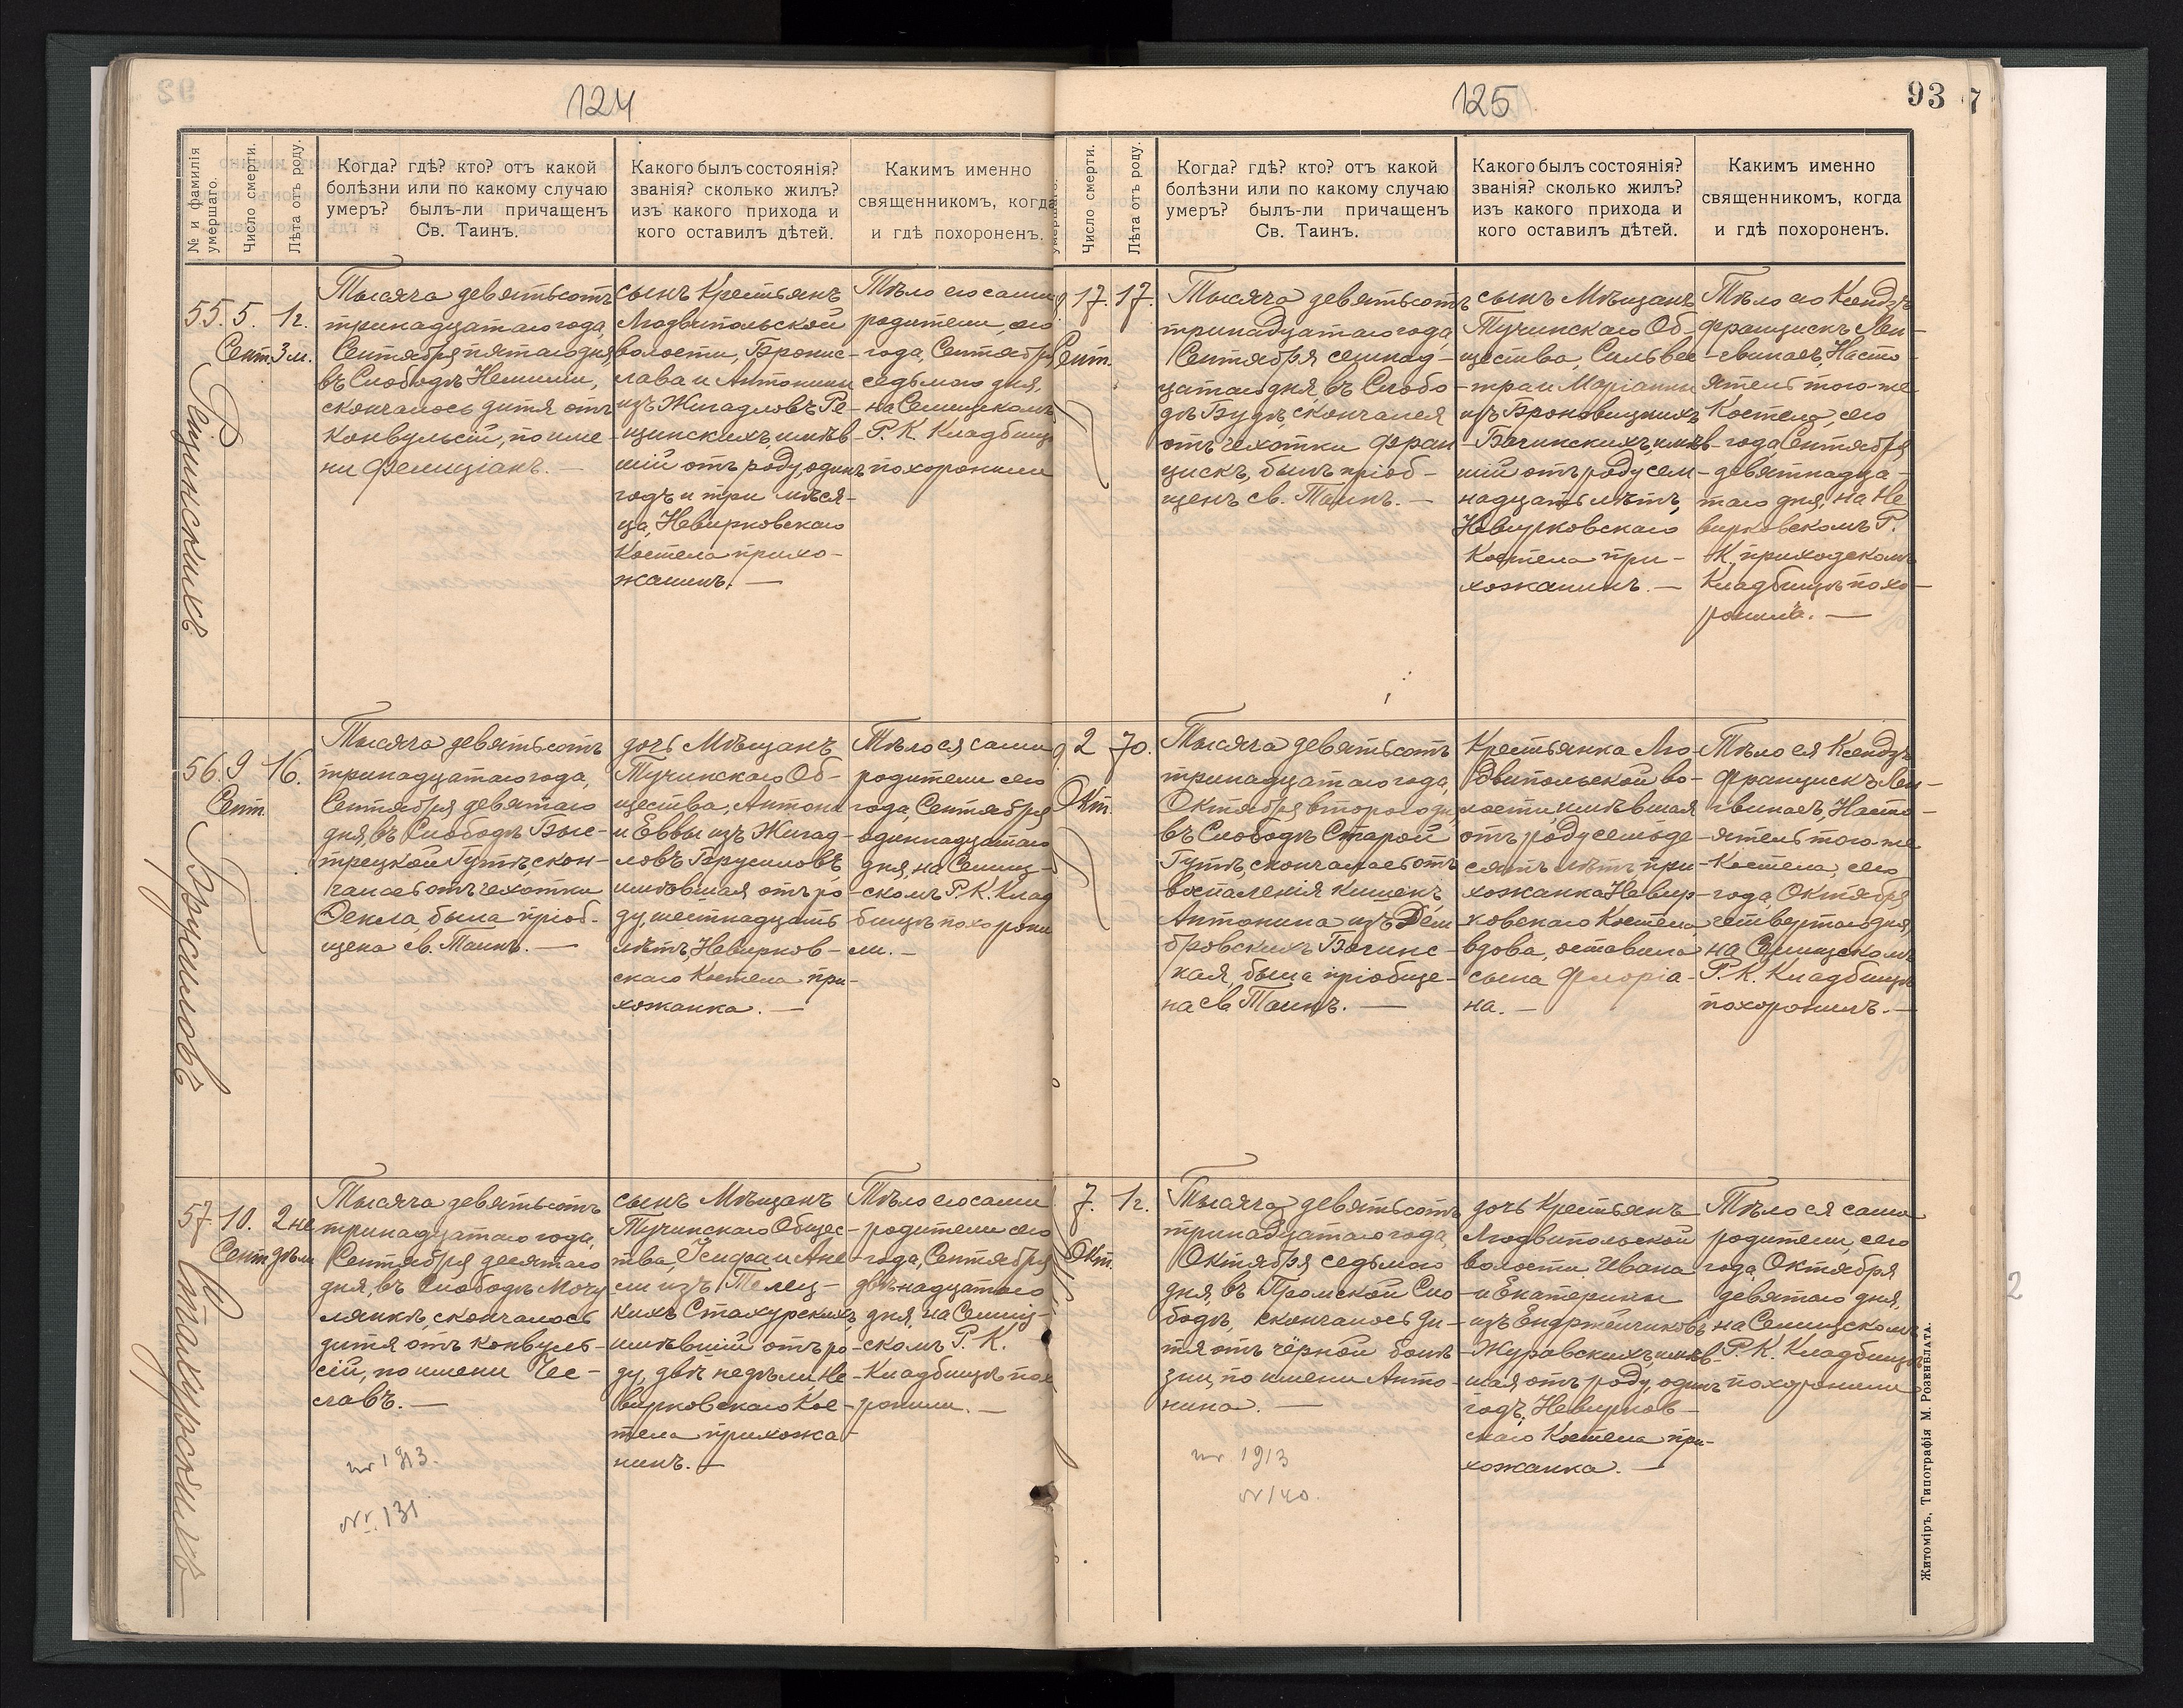 124
№ и фамилія
умершаго.
Число смерти.
Лѣта отъ роду.
Когда? гдѣ? кто? отъ какой
болѣзни или по какому случаю
умеръ? былъ-ли причащенъ
Св. Таинъ.
Какого былъ состоянія?
званія? сколько жилъ?
изъ какого прихода и
кого оставилъ дѣтей.
Какимъ именно
священникомъ, когда
и гдѣ похороненъ.
55.
5.
Сент.
1г.
3 м.
Тысяча девятьсотъ
тринадцатаго года,
Сентября пятаго дня,
въ Слободѣ Немили,
скончалось дитя отъ
конвульсій, по име-
ни Фелиціанъ. —
сынъ Крестьянъ
Людвипольской
волости, Бронис-
лава и Антонины
изъ Жигадловъ Ре-
щинскихъ, имѣв-
шій отъ роду, одинъ
годъ и три мѣся-
ца, Невирковскаго
Костела прихо-
жанинъ. —
Тѣло его сами
родители, сего
года, Сентября
седьмого дня,
на Селищскомъ
Р. К. Кладбищѣ
похоронили
56.
9
Сент.
16.
Брусиловъ
Тысяча девятьсотъ
тринадцатаго года,
Сентября девятаго
дня, въ Слободѣ Быс-
трецкой Гутѣ, скон-
чалась отъ чехотки
Текла, была пріоб-
щена св. Таинъ. —
дочь Мѣщанъ
Тучинскаго Об-
щества, Антона
и Еввы изъ Жигад-
ловъ Брусиловъ,
имѣвшая отъ ро
ду, шестнадцать
лѣтъ, Невирков-
скаго Костела при-
хожанка. —
Тѣло ея сами
родители сего
года, Сентября
одиннадцатаго
дня, на Селищ-
скомъ Р. К. Клад
бищѣ похорони
ли. —
57
10.
Сент.
2 не
дѣли
Стахурскихъ
Тысяча девятьсотъ
тринадцатаго года,
Сентября десятаго
дня, въ Слободѣ Мочу
лянкѣ, скончалось
дитя отъ конвуль-
сій, по имени Чес-
лавъ. —
nr 1913.
Nr. 131
сынъ Мѣщанъ
Тучинскаго Общес-
тва, Іосифа и Ане
ли изъ Телец-
кихъ Стахурскихъ,
имѣвшій отъ ро-
ду, двѣ недѣли, Не-
вирковскаго Кос-
тела прихожа-
нинъ. —
Тѣло его сами
родители сего
года, Сентября
двѣнадцатаго
дня, на Селищ-
скомъ Р. К.
Кладбищѣ пох
ронили. —
125
93
7
Число смерти.
Лѣта отъ роду.
Когда? гдѣ? кто? отъ какой
болѣзни или по какому случаю
умеръ? былъ-ли причащенъ
Св. Таинъ.
Какого былъ состоянія?
званія? сколько жилъ?
изъ какого прихода и
кого оставилъ дѣтей.
Какимъ именно
священникомъ, когда
и гдѣ похороненъ.
17.
Сент.
17.
Тысяча девятьсотъ
тринадцатаго года,
Сентября семнад-
цатаго дня, въ Слобо-
дѣ Будѣ, скончался
отъ чехотки Фран
цискъ, былъ пріоб-
щенъ св. Таинъ. —
сынъ Мѣщанъ
Тучинскаго Об-
щества, Сильвес-
тра и Маріанны
изъ Броновицкихъ
Бачинскихъ, имѣв-
шій отъ роду сем-
надцать лѣтъ,
Невирковскаго
Костела при-
хожанинъ. —
Тѣло его Ксендзъ
Францискъ
Насто-
ятель того-же
Костела, сего
года, Сентября
девятнадца-
таго дня, на Не
вирковскомъ Р.
К. приходскомъ
Кладбищѣ похо-
ронилъ. —
2
Окт.
70.
Тысяча девятьсотъ
тринадцатаго года,
Октября второго дн
въ Слободѣ Старой
Гутѣ, скончалась отъ
воспаленія кишекъ,
Антонина изъ Дем
бровскихъ Бачинс-
кая, была пріобще-
на св Таинъ. —
Крестьянка Лю-
двипольской во-
лости, имѣвшая
отъ роду семьде-
сятъ лѣтъ, при-
хожанка Невир-
ковскаго Костела
вдова, оставила
сына Флоріа-
на. —
Тѣло ея Ксендзъ
Францискъ
Насто-
ятель того-же
Костела, сего
года, Октября
четвертаго дня,
на Селищскомъ
Р. К. Кладбищѣ
похоронилъ. —
7.
Окт.
1г.
Тысяча девятьсотъ
тринадцатаго года,
Октября седьмого
дня, въ Громской Сло-
бодѣ, скончалось ди-
тя отъ чёрной болѣ-
зни, по имени Анто-
нина. —
nr. 1913
N 140.
дочь Крестьянъ
Людвипольской
волости Ивана
и Екатерины
изъ Ендржейчиковъ
Журавскихъ, имѣв-
шая отъ роду, одинъ
годъ, Невирков-
скаго Костела при-
хожанка. —
Тѣло ея сами
родители, сего
года, Октября
девятаго дня,
на Селищскомъ
Р. К. Кладбищѣ
похоронили
Житоміръ, Типографія М. Розенблата.
2